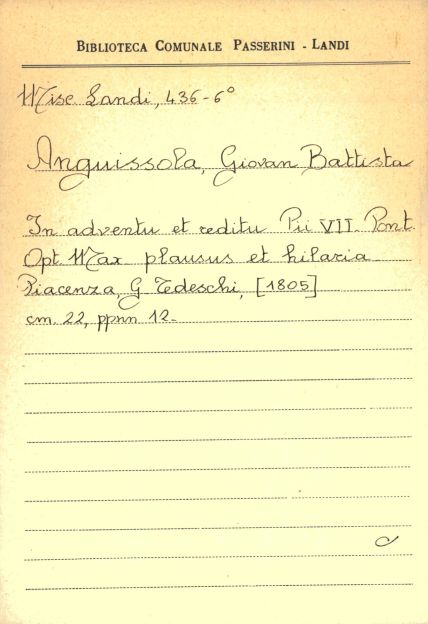 BIBLIOTECA COMUNALE PASSERINI - LANDI
Misc Landi, 436-6°
Anguissola, Giovan Battista
In adventu et reditu Pii VII. Pont.
Opt. Max plausus et hilaria
Piacenza, G. Tedeschi, [1805]
cm. 22, ppnn 12.